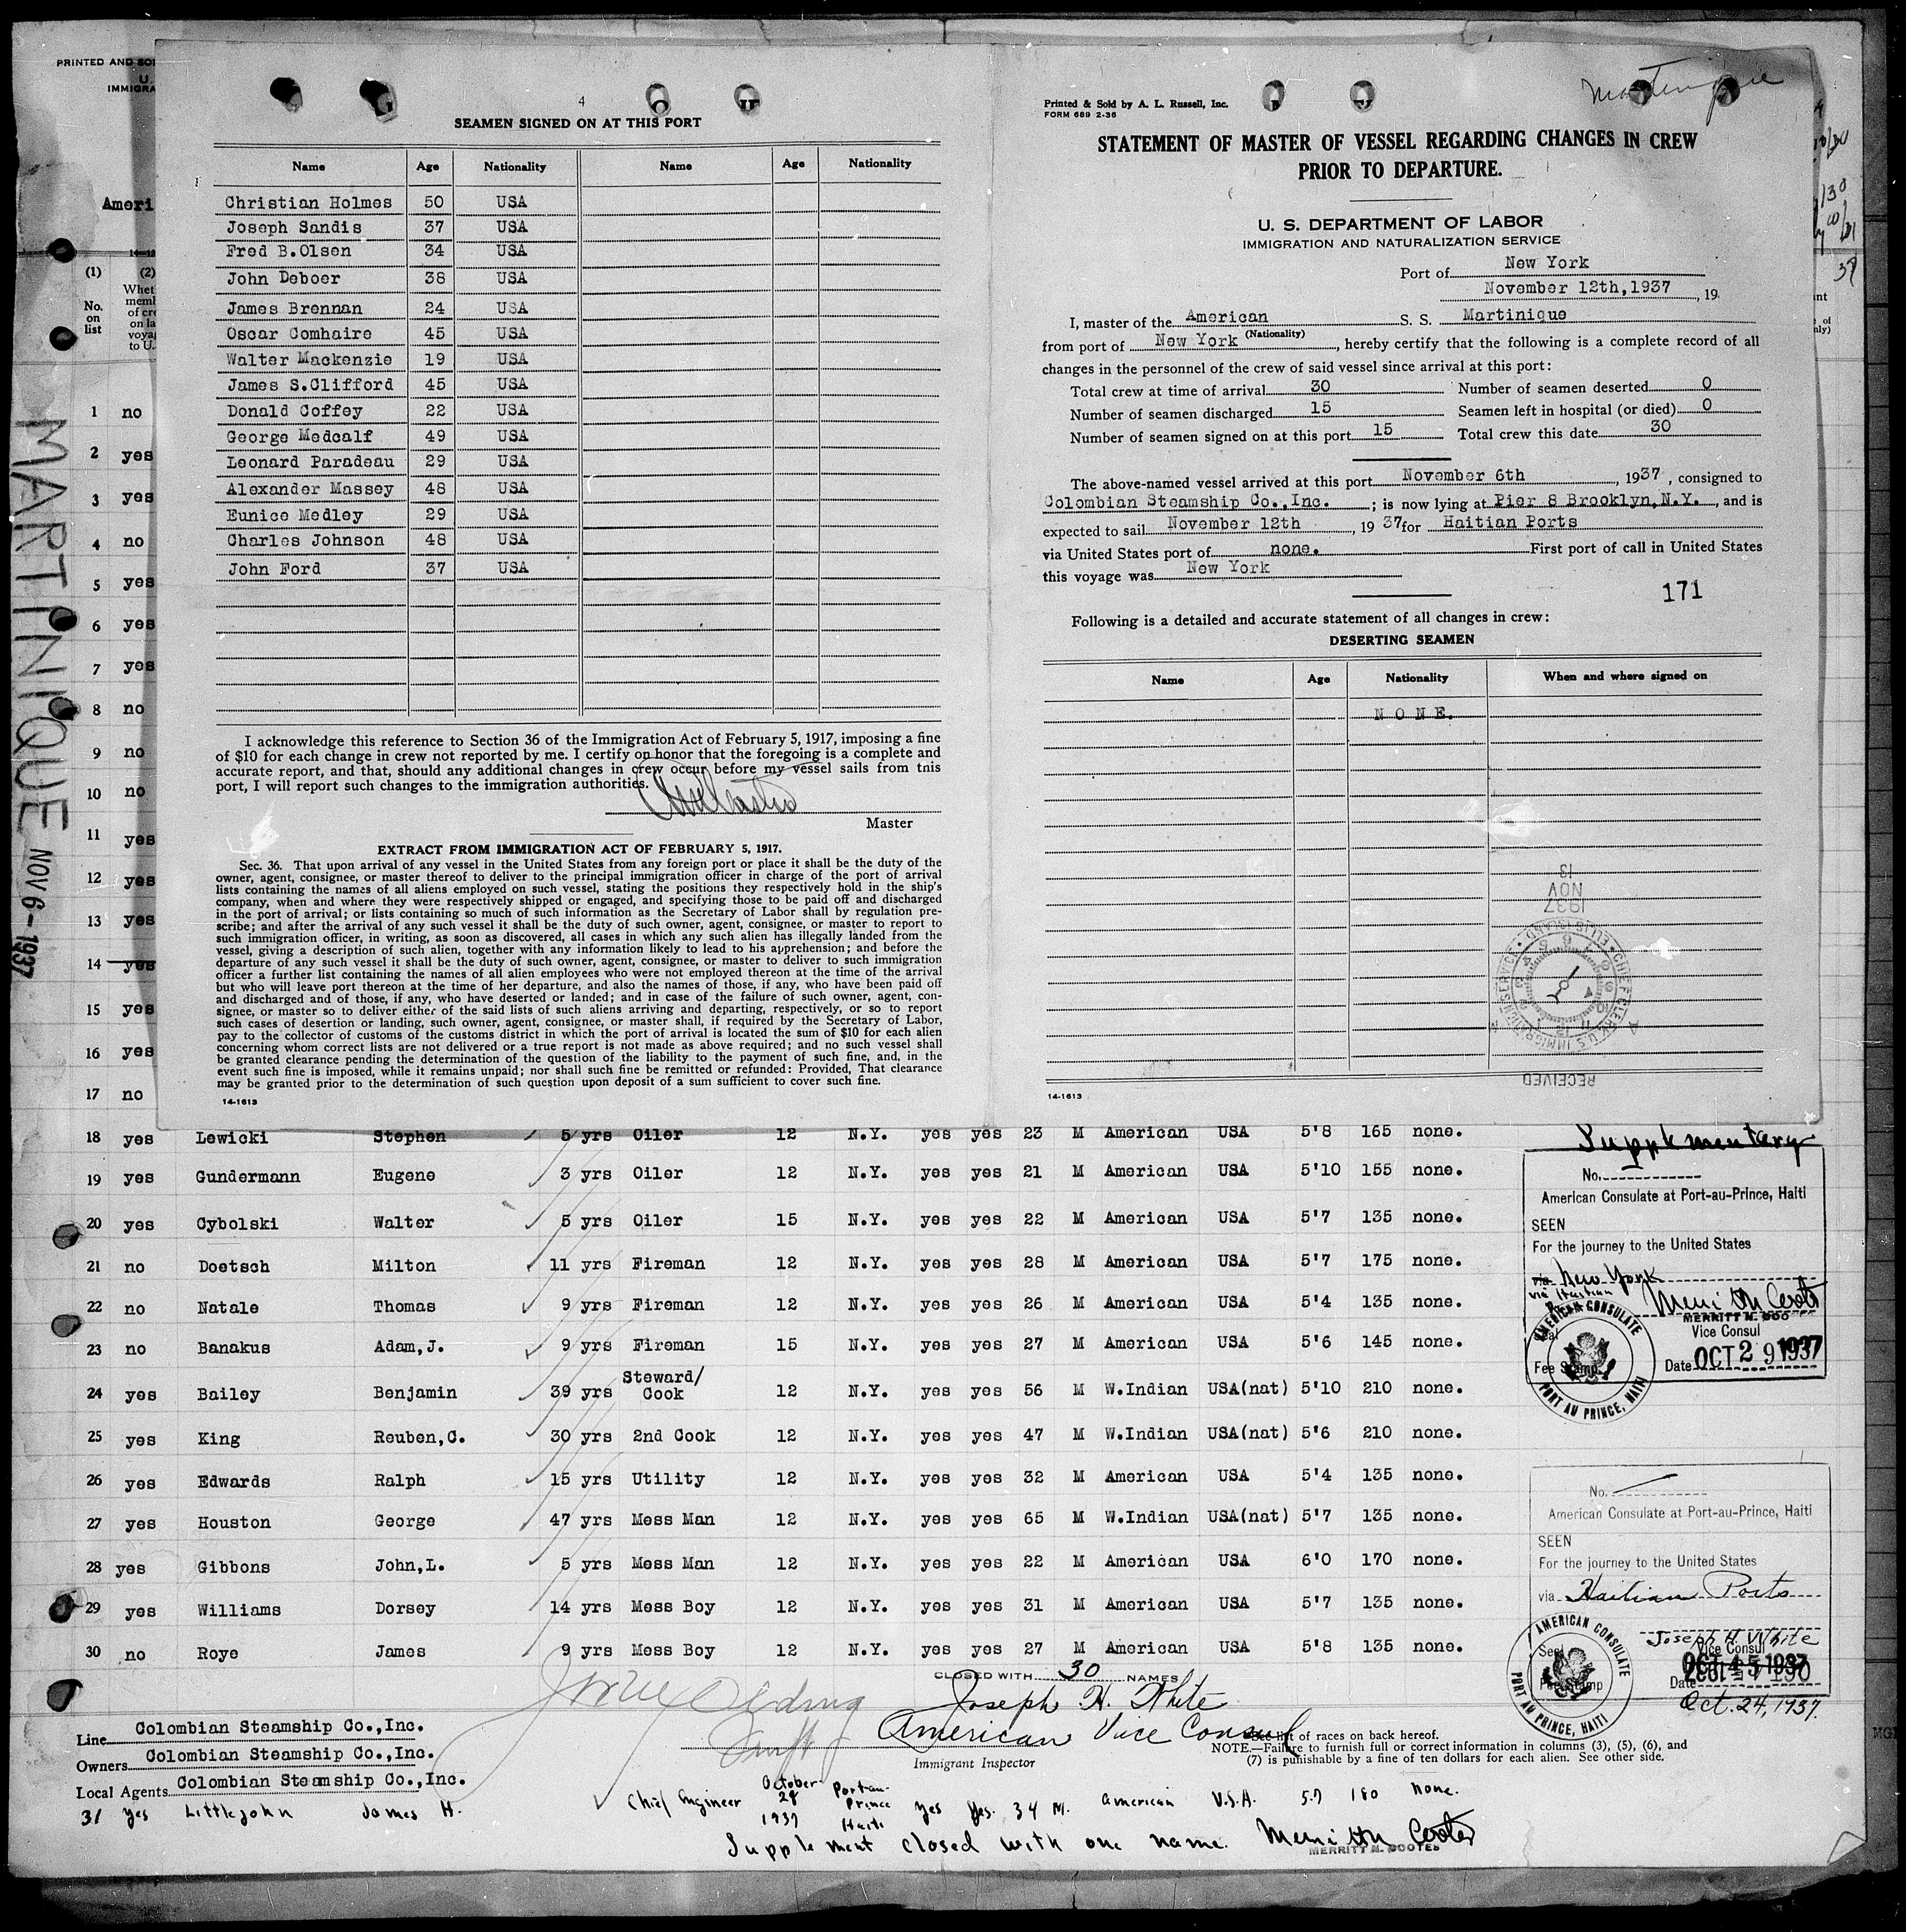 PRINTED AND SO
U.
IMMIGRA
Ameri
(1) (2)
No. on list
Whet
memb
of cre
on la
voya
to U.
MARTINIQUE NOV 6-1937
1 no
2 yes
3 yes
4 no
5 yes
6 yes
7 yes
8 no
9 no
10 no
11 yes
12 yes
13 yes
14 yes
15 yes
16 yes
17 no
4
SEAMEN SIGNED ON AT THIS PORT
Name Age Nationality Name Age Nationality
Christian Holmes 50 USA
Joseph Sandis 37 USA
Fred B.Olsen 34 USA
John Deboer 38 USA
James Brennan 24 USA
Oscar Comhaire 45 USA
Walter Mackenzie 19 USA
James S.Clifford 45 USA
Donald Coffey 22 USA
George Medcalf 49 USA
Leonard Paradeau 29 USA
Alexander Massey 48 USA
Eunice Medley 29 USA
Charles Johnson 48 USA
John Ford 37 USA
I acknowledge this reference to Section 36 of the Immigration Act of February 5, 1917, imposing a fine
of $10 for each change in crew not reported by me. I certify on honor that the foregoing is a complete and
accurate report, and that, should any additional changes in crew occur before my vessel sails from this
port, I will report such changes to the immigration authorities.
Master
EXTRACT FROM IMMIGRATION ACT OF FEBRUARY 5, 1917.
Sec. 36. That upon arrival of any vessel in the United States from any foreign port or place it shall be the duty of the
owner, agent, consignee, or master thereof to deliver to the principal immigration officer in charge of the port of arrival
lists containing the names of all aliens employed on such vessel, stating the positions they respectively hold in the ship's
company, when and where they were respectively shipped or engaged, and specifying those to be paid off and discharged
in the port of arrival; or lists containing so much of such information as the Secretary of Labor shall by regulation pre-
scribe; and after the arrival of any such vessel it shall be the duty of such owner, agent, consignee, or master to report to
such immigration officer, in writing, as soon as discovered, all cases in which any such alien has illegally landed from the
vessel, giving a description of such alien, together with any information likely to lead to his apprehension; and before the
departure of any such vessel it shall be the duty of such owner, agent, consignee, or master to deliver to such immigration
officer a further list containing the names of all alien employees who were not employed thereon at the time of the arrival
but who will leave port thereon at the time of her departure, and also the names of those, if any, who have been paid off
and discharged and of those, if any, who have deserted or landed; and in case of the failure of such owner, agent, con-
signee, or master so to deliver either of the said lists of such aliens arriving and departing, respectively, or so to report
such cases of desertion or landing, such owner, agent, consignee, or master shall, if required by the Secretary of Labor,
pay to the collector of customs of the customs district in which the port of arrival is located the sum of $10 for each alien
concerning whom correct lists are not delivered or a true report is not made as above required; and no such vessel shall
be granted clearance pending the determination of the question of the liability to the payment of such fine, and, in the
event such fine is imposed, while it remains unpaid; nor shall such fine be remitted or refunded: Provided, That clearance
may be granted prior to the determination of such question upon deposit of a sum sufficient to cover such fine.
14-1613
Martinique
Printed & Sold by A. L. Russell, Inc.
FORM 689 2-36
STATEMENT OF MASTER OF VESSEL REGARDING CHANGES IN CREW
PRIOR TO DEPARTURE.
U. S. DEPARTMENT OF LABOR
IMMIGRATION AND NATURALIZATION SERVICE
Port of New York
November 12th,1937, 19
I, master of the American S. S. Martinique
(Nationality)
from port of New York, hereby certify that the following is a complete record of all
changes in the personnel of the crew of said vessel since arrival at this port:
Total crew at time of arrival 30 Number of seamen deserted 0
Number of seamen discharged 15 Seamen left in hospital (or died) 0
Number of seamen signed on at this port 15 Total crew this date 30
The above-named vessel arrived at this port November 6th, 1937, consigned to
Colombian Steamship Co.,Inc.; is now lying at Pier 8 Brooklyn,N.Y., and is
expected to sail November 12th, 1937 for Haitian Ports
via United States port of none. First port of call in United States
this voyage was New York
171
Following is a detailed and accurate statement of all changes in crew:
DESERTING SEAMEN
Name Age Nationality When and where signed on
NONE.
13
NOV
1937
CHIEF CLERK U.S. IMMIGRATION SERVICE ELLIS ISLAND
RECEIVED
14-1613
18 yes Lewicki Stephen 5 yrs Oiler 12 N.Y. yes yes 23 M American USA 5'8 165 none.
19 yes Gundermann Eugene 3 yrs Oiler 12 N.Y. yes yes 21 M American USA 5'10 155 none.
20 yes Cybolski Walter 5 yrs Oiler 15 N.Y. yes yes 22 M American USA 5'7 135 none.
21 no Doetsch Milton 11 yrs Fireman 12 N.Y. yes yes 28 M American USA 5'7 175 none.
22 no Natale Thomas 9 yrs Fireman 12 N.Y. yes yes 26 M American USA 5'4 135 none.
23 no Banakus Adam,J. 9 yrs Fireman 15 N.Y. yes yes 27 M American USA 5'6 145 none.
24 yes Bailey Benjamin 39 yrs Steward/Cook 12 N.Y. yes yes 56 M W.Indian USA(nat) 5'10 210 none.
25 yes King Reuben,C. 30 yrs 2nd Cook 12 N.Y. yes yes 47 M W.Indian USA(nat) 5'6 210 none.
26 yes Edwards Ralph 15 yrs Utility 12 N.Y. yes yes 32 M American USA 5'4 135 none.
27 yes Houston George 47 yrs Mess Man 12 N.Y. yes yes 65 M W.Indian USA(nat) 5'7 135 none.
28 yes Gibbons John,L. 5 yrs Mess Man 12 N.Y. yes yes 22 M American USA 6'0 170 none.
29 yes Williams Dorsey 14 yrs Mess Boy 12 N.Y. yes yes 31 M American USA 5'7 135 none.
30 no Roye James 9 yrs Mess Boy 12 N.Y. yes yes 27 M American USA 5'8 135 none.
Supplementary
No.
American Consulate at Port-au-Prince, Haiti
SEEN
For the journey to the United States
via New York
via Haitian
MERRITT N. COO
Vice Consul
Fee Stamp Date OCT 29 1937
AMERICAN CONSULATE PORT AU PRINCE, HAITI
No.
American Consulate at Port-au-Prince, Haiti
SEEN
For the journey to the United States
via Haitian Ports
Joseph H. White
Vice Consul
Seal
Fee Stamp Date
Oct. 24, 1937.
AMERICAN CONSULATE PORT AU PRINCE, HAITI
CLOSED WITH 30 NAMES
Joseph H. White
American Vice Consul
Immigrant Inspector
See list of races on back hereof.
NOTE.—Failure to furnish full or correct information in columns (3), (5), (6), and
(7) is punishable by a fine of ten dollars for each alien. See other side.
Line Colombian Steamship Co.,Inc.
Owners Colombian Steamship Co.,Inc.
Local Agents Colombian Steamship Co.,Inc.
31 yes Littlejohn James H. Chief Engineer October 29 1937 Port-au-Prince Haiti yes yes. 34 M. American U.S.A. 5.7 180 none.
Supplement closed with one name. Merritt N Cootes
MERRITT N. COOTES